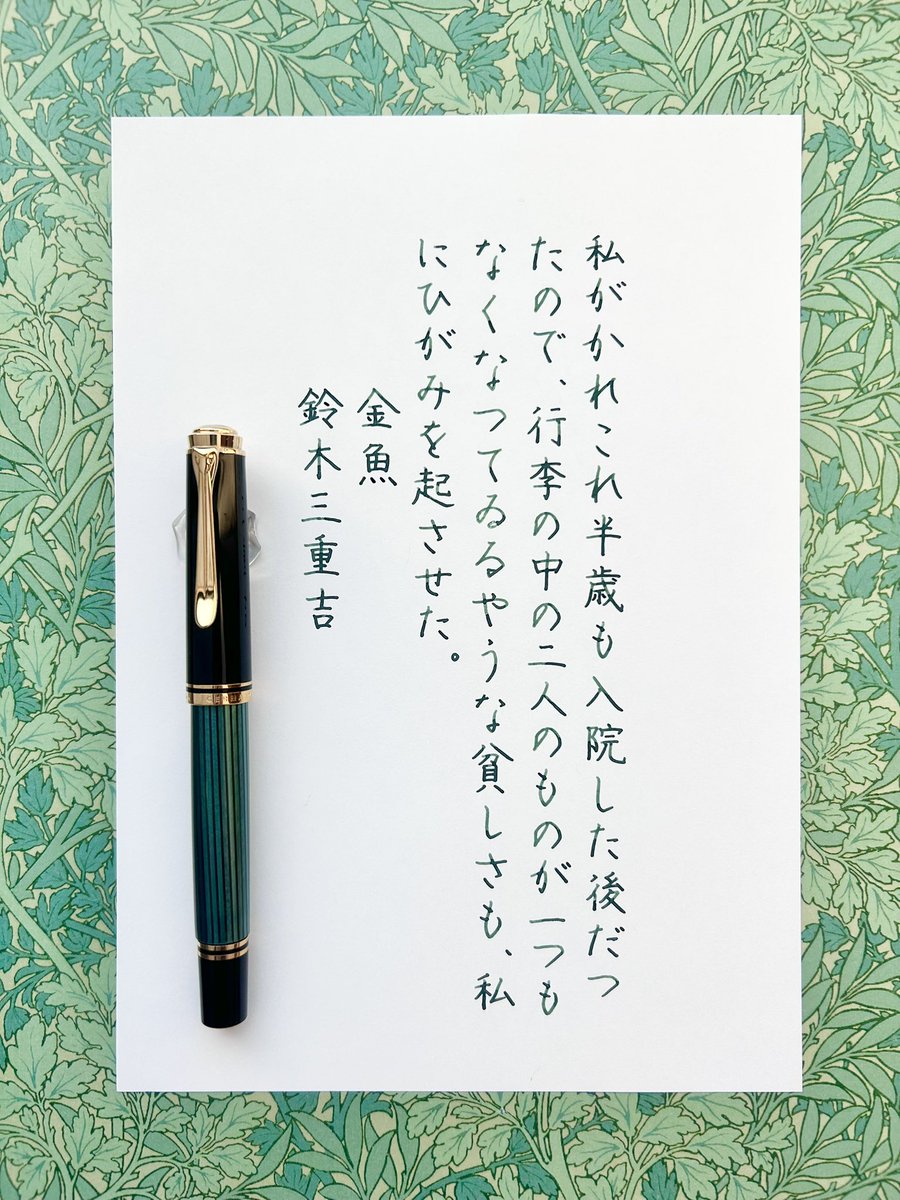 私がかれこれ半歳も入院した後だつ
たので、行李の中の二人のものが一つも
なくなつてゐるやうな貧しさも、私
にひがみを起させた。
金魚
鈴木三重吉